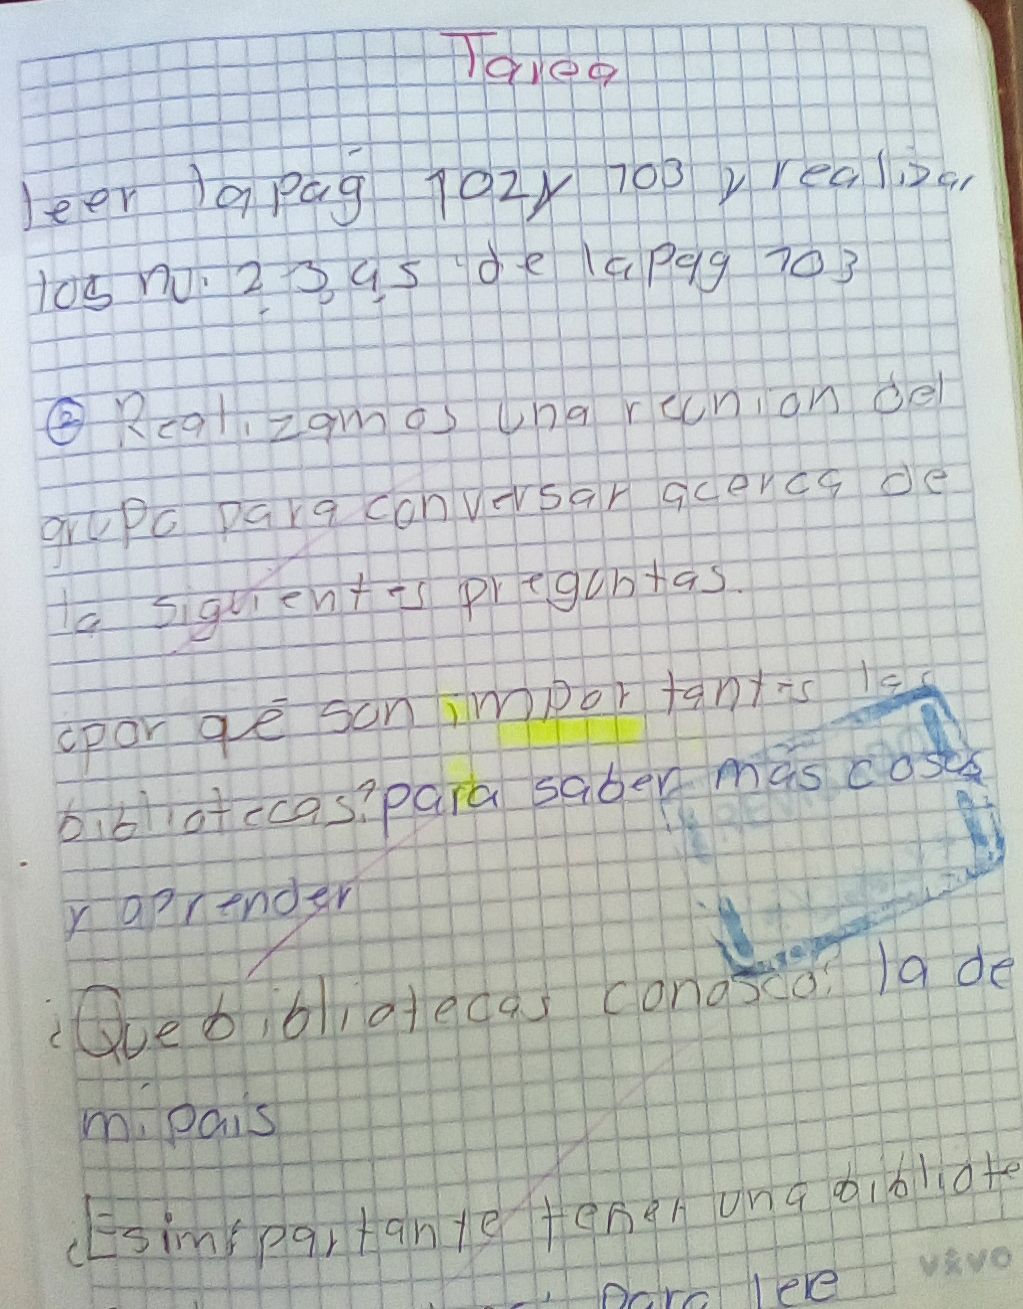 Tarea
leer la pág 102 y 103 y realizar
los nu. 2, 3, 4, 5 de la pag 103
② Realizamos una reunion del
grupo para conversar acerca de
la siguientes preguntas.
¿por qé son importantes las
bibliotecas? para saber más cosas
y aprender
¿Que bibliotecas conosco? la de
mi pais
¿Es importante tener una bibliote
para lee
vivo